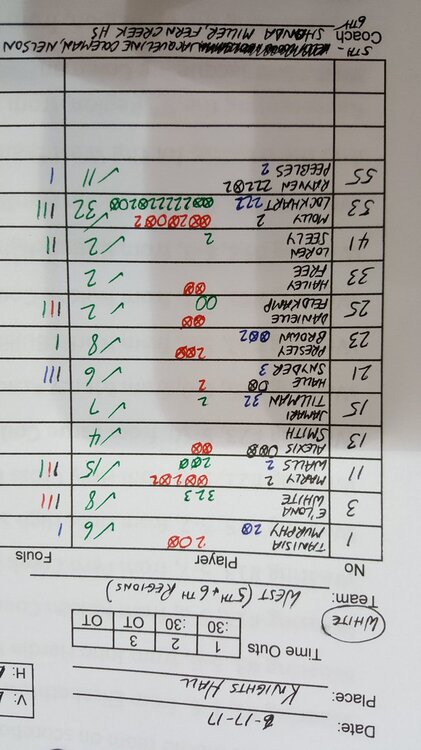 Date: 6-17-17
Place: KNIGHTS HALL
V:
H:
Time Outs 1 2 3
:30 :30 OT OT
Team: WHITE WEST (5TH & 6TH REGIONS)
No Player Fouls
1 TANISIA MURPHY 20 ✓ 6 I
3 E'LONA WHITE 323 ✓ 8 III
11 MARLY WALLS 2 2 ✓ 15 III
13 ALEXIS SMITH ✓ 4
15 JAMARI TILLMAN 32 2 ✓ 7
21 HALLE SNYDER 3 2 ✓ 6 III
23 PRESLEY BROWN ✓ 8 I
25 DANIELLE FELDKAMP ✓ 2 III
33 HAILEY FREE ✓ 2
41 LOREN SEELY 2 ✓ 2 II
53 MOLLY LOCKHART 2 222 ✓ 32 III
55 RAVEN PEEBLES 2 ✓ 11 I
Coach 5TH - JACQUELINE COLEMAN, NELSON
6TH SHONDA MILLER, FERN CREEK HS